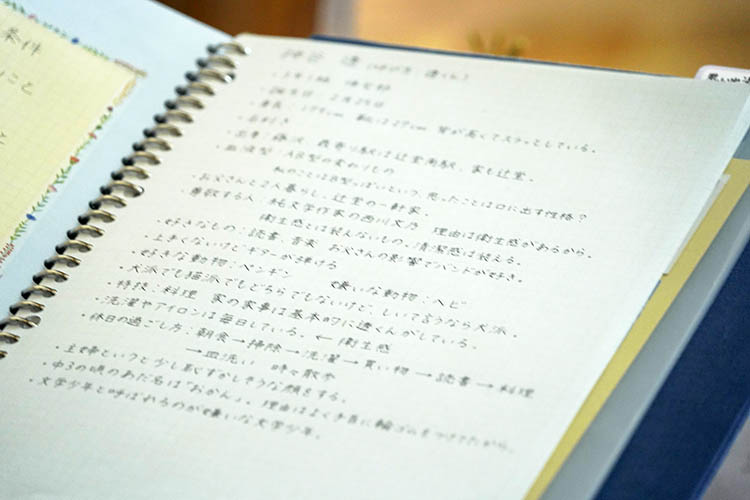 条件
こと
神谷 透(かみや とおる)
・誕生日 2月25日
・身長 177cm 靴は27cm 背が高くてスラッとしている。
・右利き
・出身:藤沢 最寄り駅は辻堂南駅、家も辻堂。
・血液型 AB型の変わりもの
私のことはB型っぽいという、思ったことは口に出す性格?
・お父さんと2人暮らし。辻堂の一軒家。
・尊敬する人 純文学作家の西川文乃 理由は衛生感があるから。
衛生感とは装えないもの。清潔感は装える。
・好きなもの:読書、音楽 お父さんの影響でバンドが好き。
・上手くないけどギターが弾ける
・好きな動物:ペンギン 嫌いな動物:ヘビ
・犬派でも猫派でもどちらでもないけど、しいて言うなら犬派。
・特技:料理 家の家事は基本的に透くんがしている。
・洗濯やアイロンは毎日している。←衛生感
・休日の過ごし方:朝食→掃除→洗濯→買い物→読書→料理
→皿洗い 時々散歩
・主婦というと少し恥ずかしそうな顔をする。
・中3の頃のあだ名は「おかん」。理由はよく手首に輪ゴムをつけてたから。
・文学少年と呼ばれるのが嫌いな文学少年。